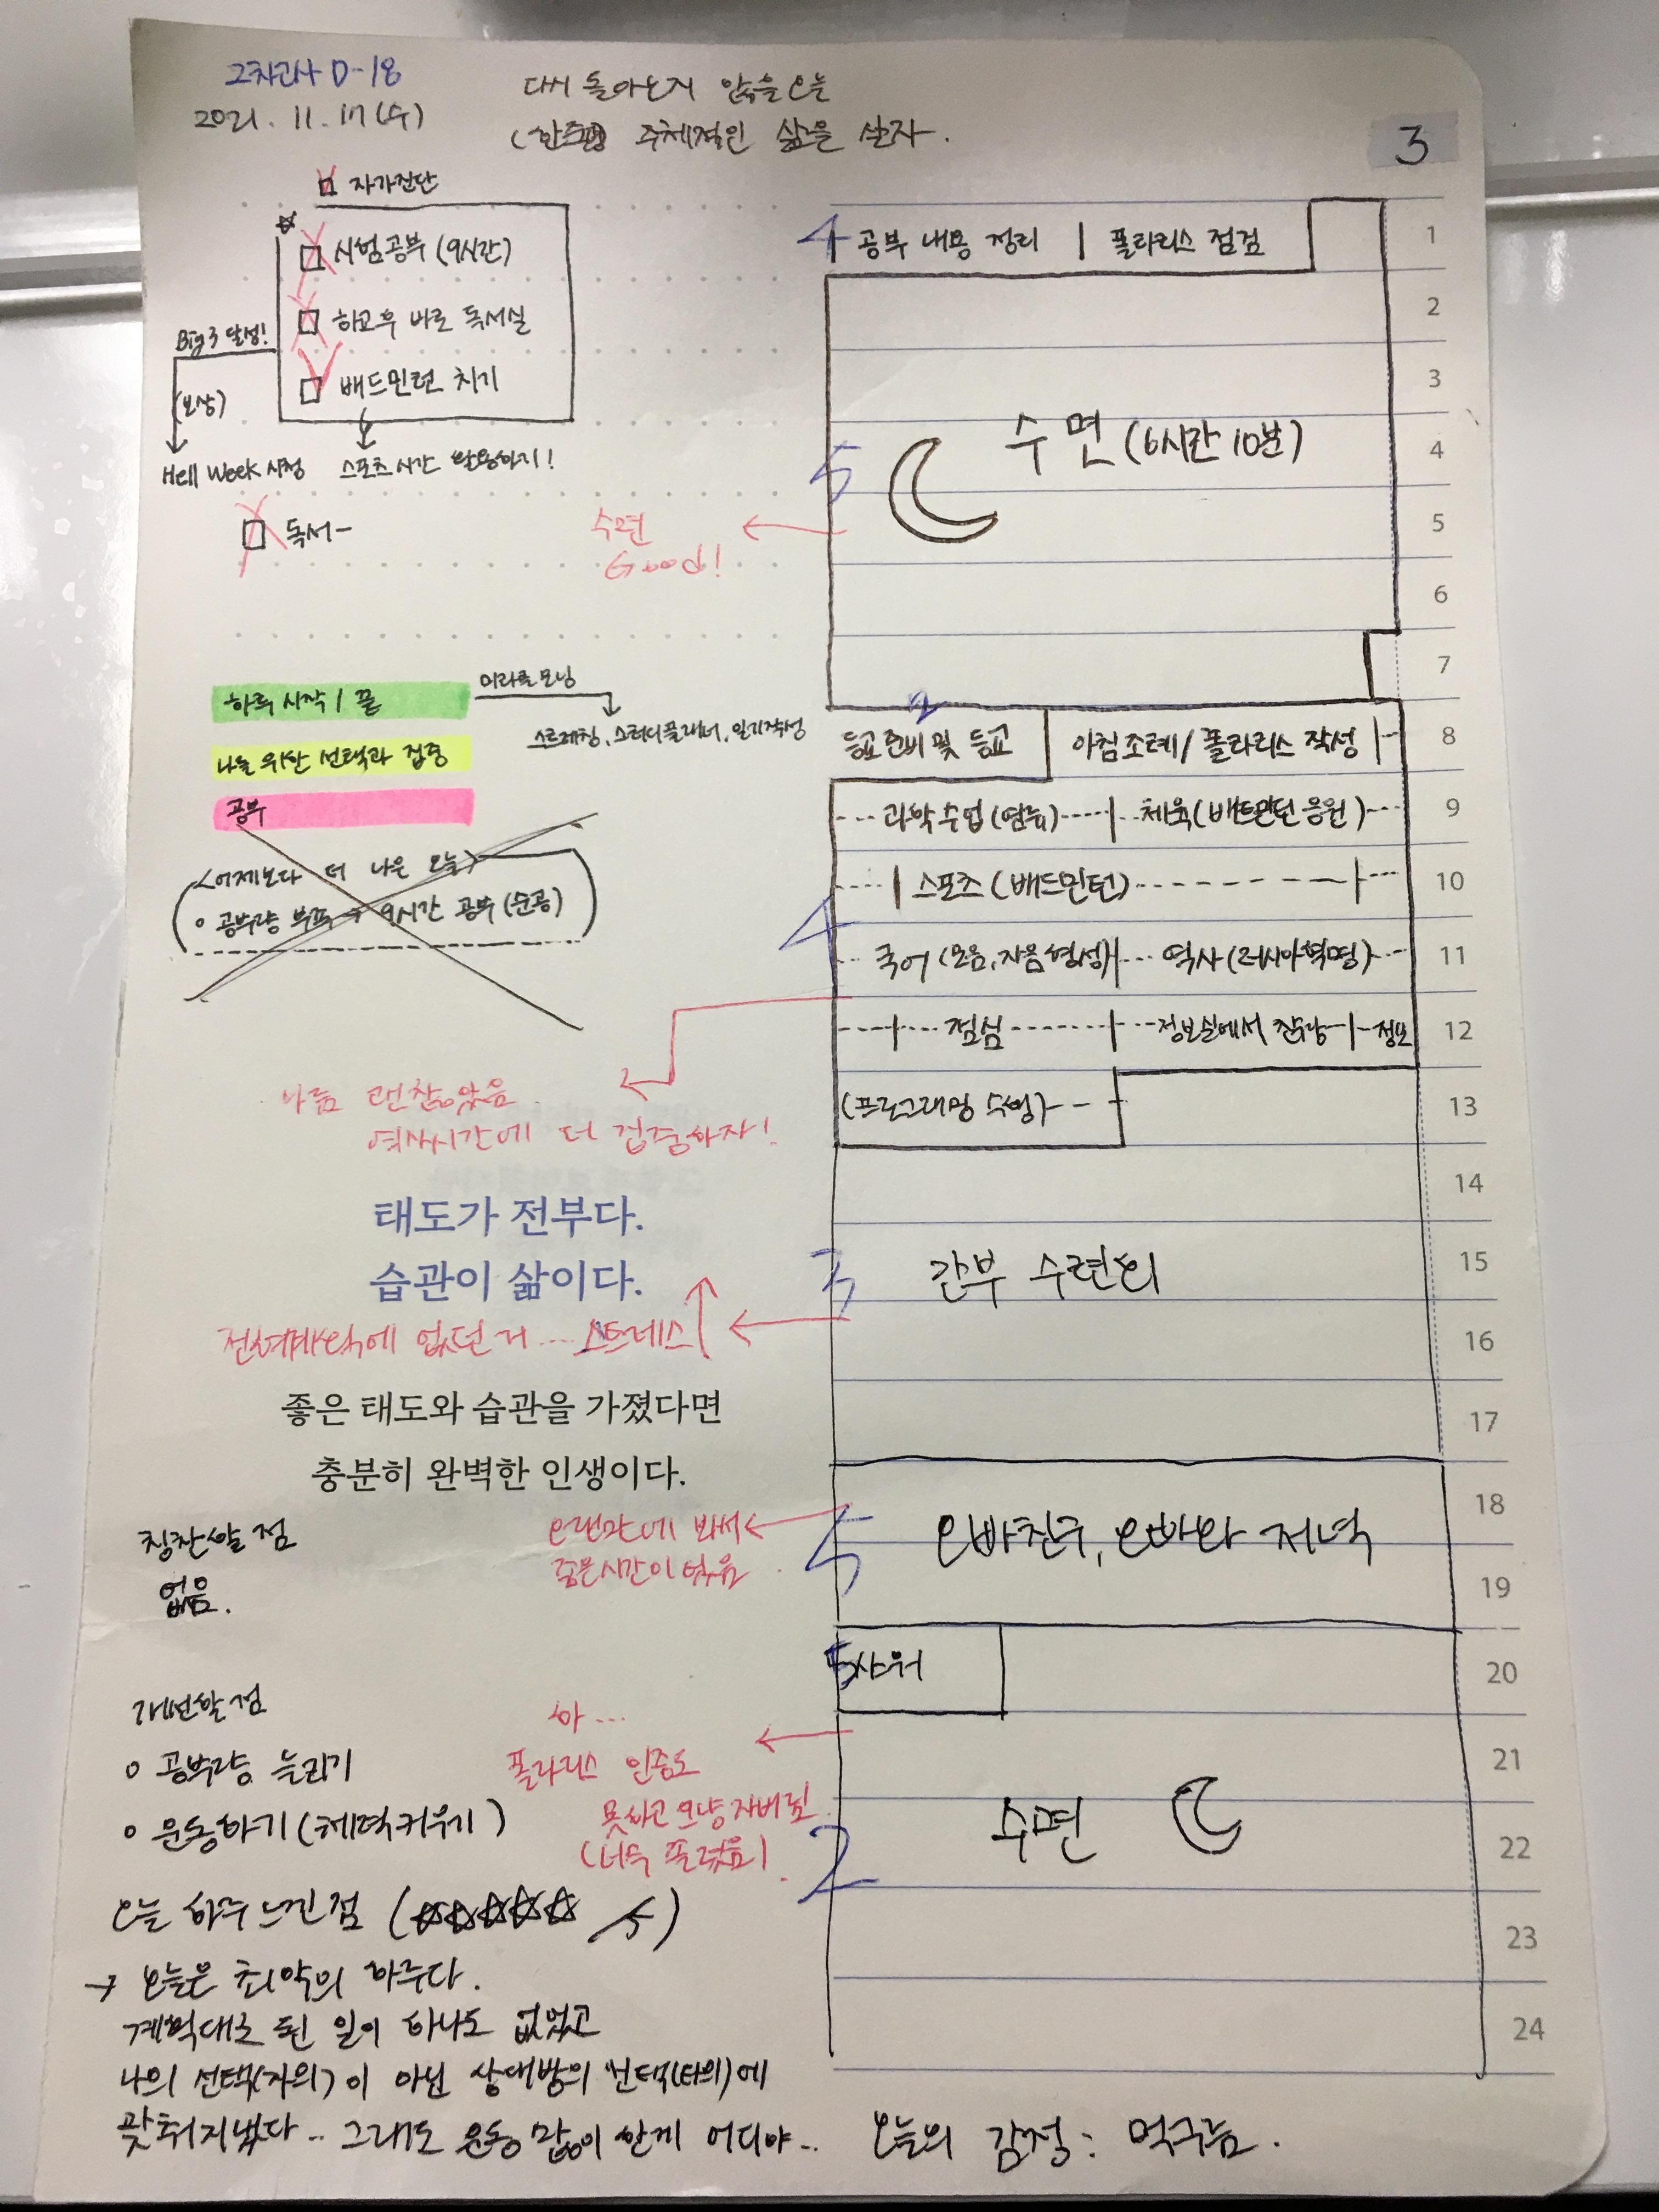 2차고사 D-18
2021. 11. 17(수)
다시 돌아오지 않을 오늘
주체적인 삶을 살자.
3
자가진단
시험공부 (9시간)
하교후 바로 독서실
배드민턴 치기
Big 3 달성!
(보상)
Hell Week 시청
스포츠 시간 활용하기!
독서
수면
Good!
하루 시작 / 끝
미라클 모닝
스트레칭, 스터디플래너, 일기작성
나를 위한 선택과 집중
공부
<어제보다 더 나은 오늘>
공부량 부족 → 9시간 공부 (순공)
나름 괜찮았음
역사시간에 더 집중하자!
태도가 전부다.
습관이 삶이다.
전혀 계획에 없던 거... 스트레스 ↑
좋은 태도와 습관을 가졌다면
충분히 완벽한 인생이다.
칭찬할 점
없음.
오랜만에 봐서
좋은시간이 었음
개선할 점
공부량 늘리기
운동하기 (체력키우기)
하...
폴라리스 인증도
못하고 그냥 자버림
(너무 풀렸음)
오늘 하루 느낀점 (☆☆☆☆☆ /5)
→ 오늘은 최악의 하루다.
계획대로 된 일이 하나도 없었고
나의 선택(자의)이 아닌 상대방의 선택(타의)에
맞춰 지냈다.. 그래도 운동 많이 한게 어디야..
오늘의 감정:
4 공부 내용 정리 | 폴라리스 점검 1
2
3
수면 (6시간 10분) 4
5
5
6
7
2
등교 준비 및 등교 아침조례 / 폴라리스 작성 8
과학 수업 (염류) 체육 (배드민턴 응원) 9
스포츠 (배드민턴) 10
4
국어 (모음, 자음 형성) 역사 (러시아 혁명) 11
점심 정보실에서 정보 12
(프로그래밍 수업) 13
14
3 간부 수련회 15
16
17
18
5 오빠친구, 오빠와 저녁
19
5 샤워 20
21
2 수면 22
23
24